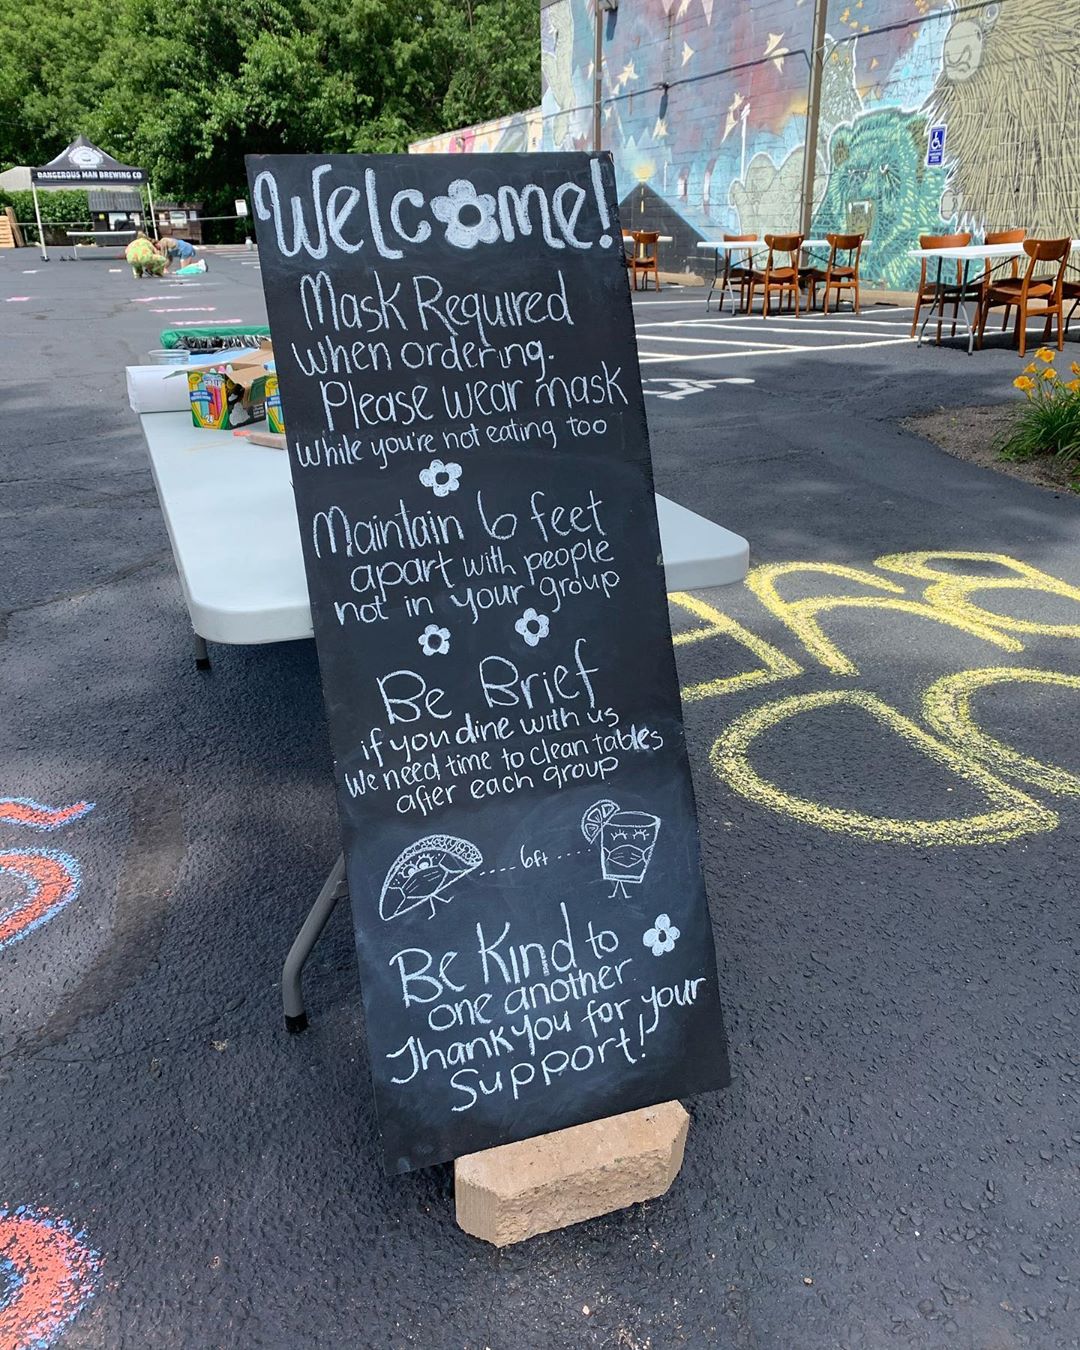 DANGEROUS MAN BREWING CO
Welcome!
Mask Required
when ordering.
Please wear mask
while you're not eating too
Maintain 6 feet
apart with people
not in your group
Be Brief
if you dine with us
We need time to clean tables
after each group
6ft
Be Kind to
one another.
Thank you for your
Support!
CHALK